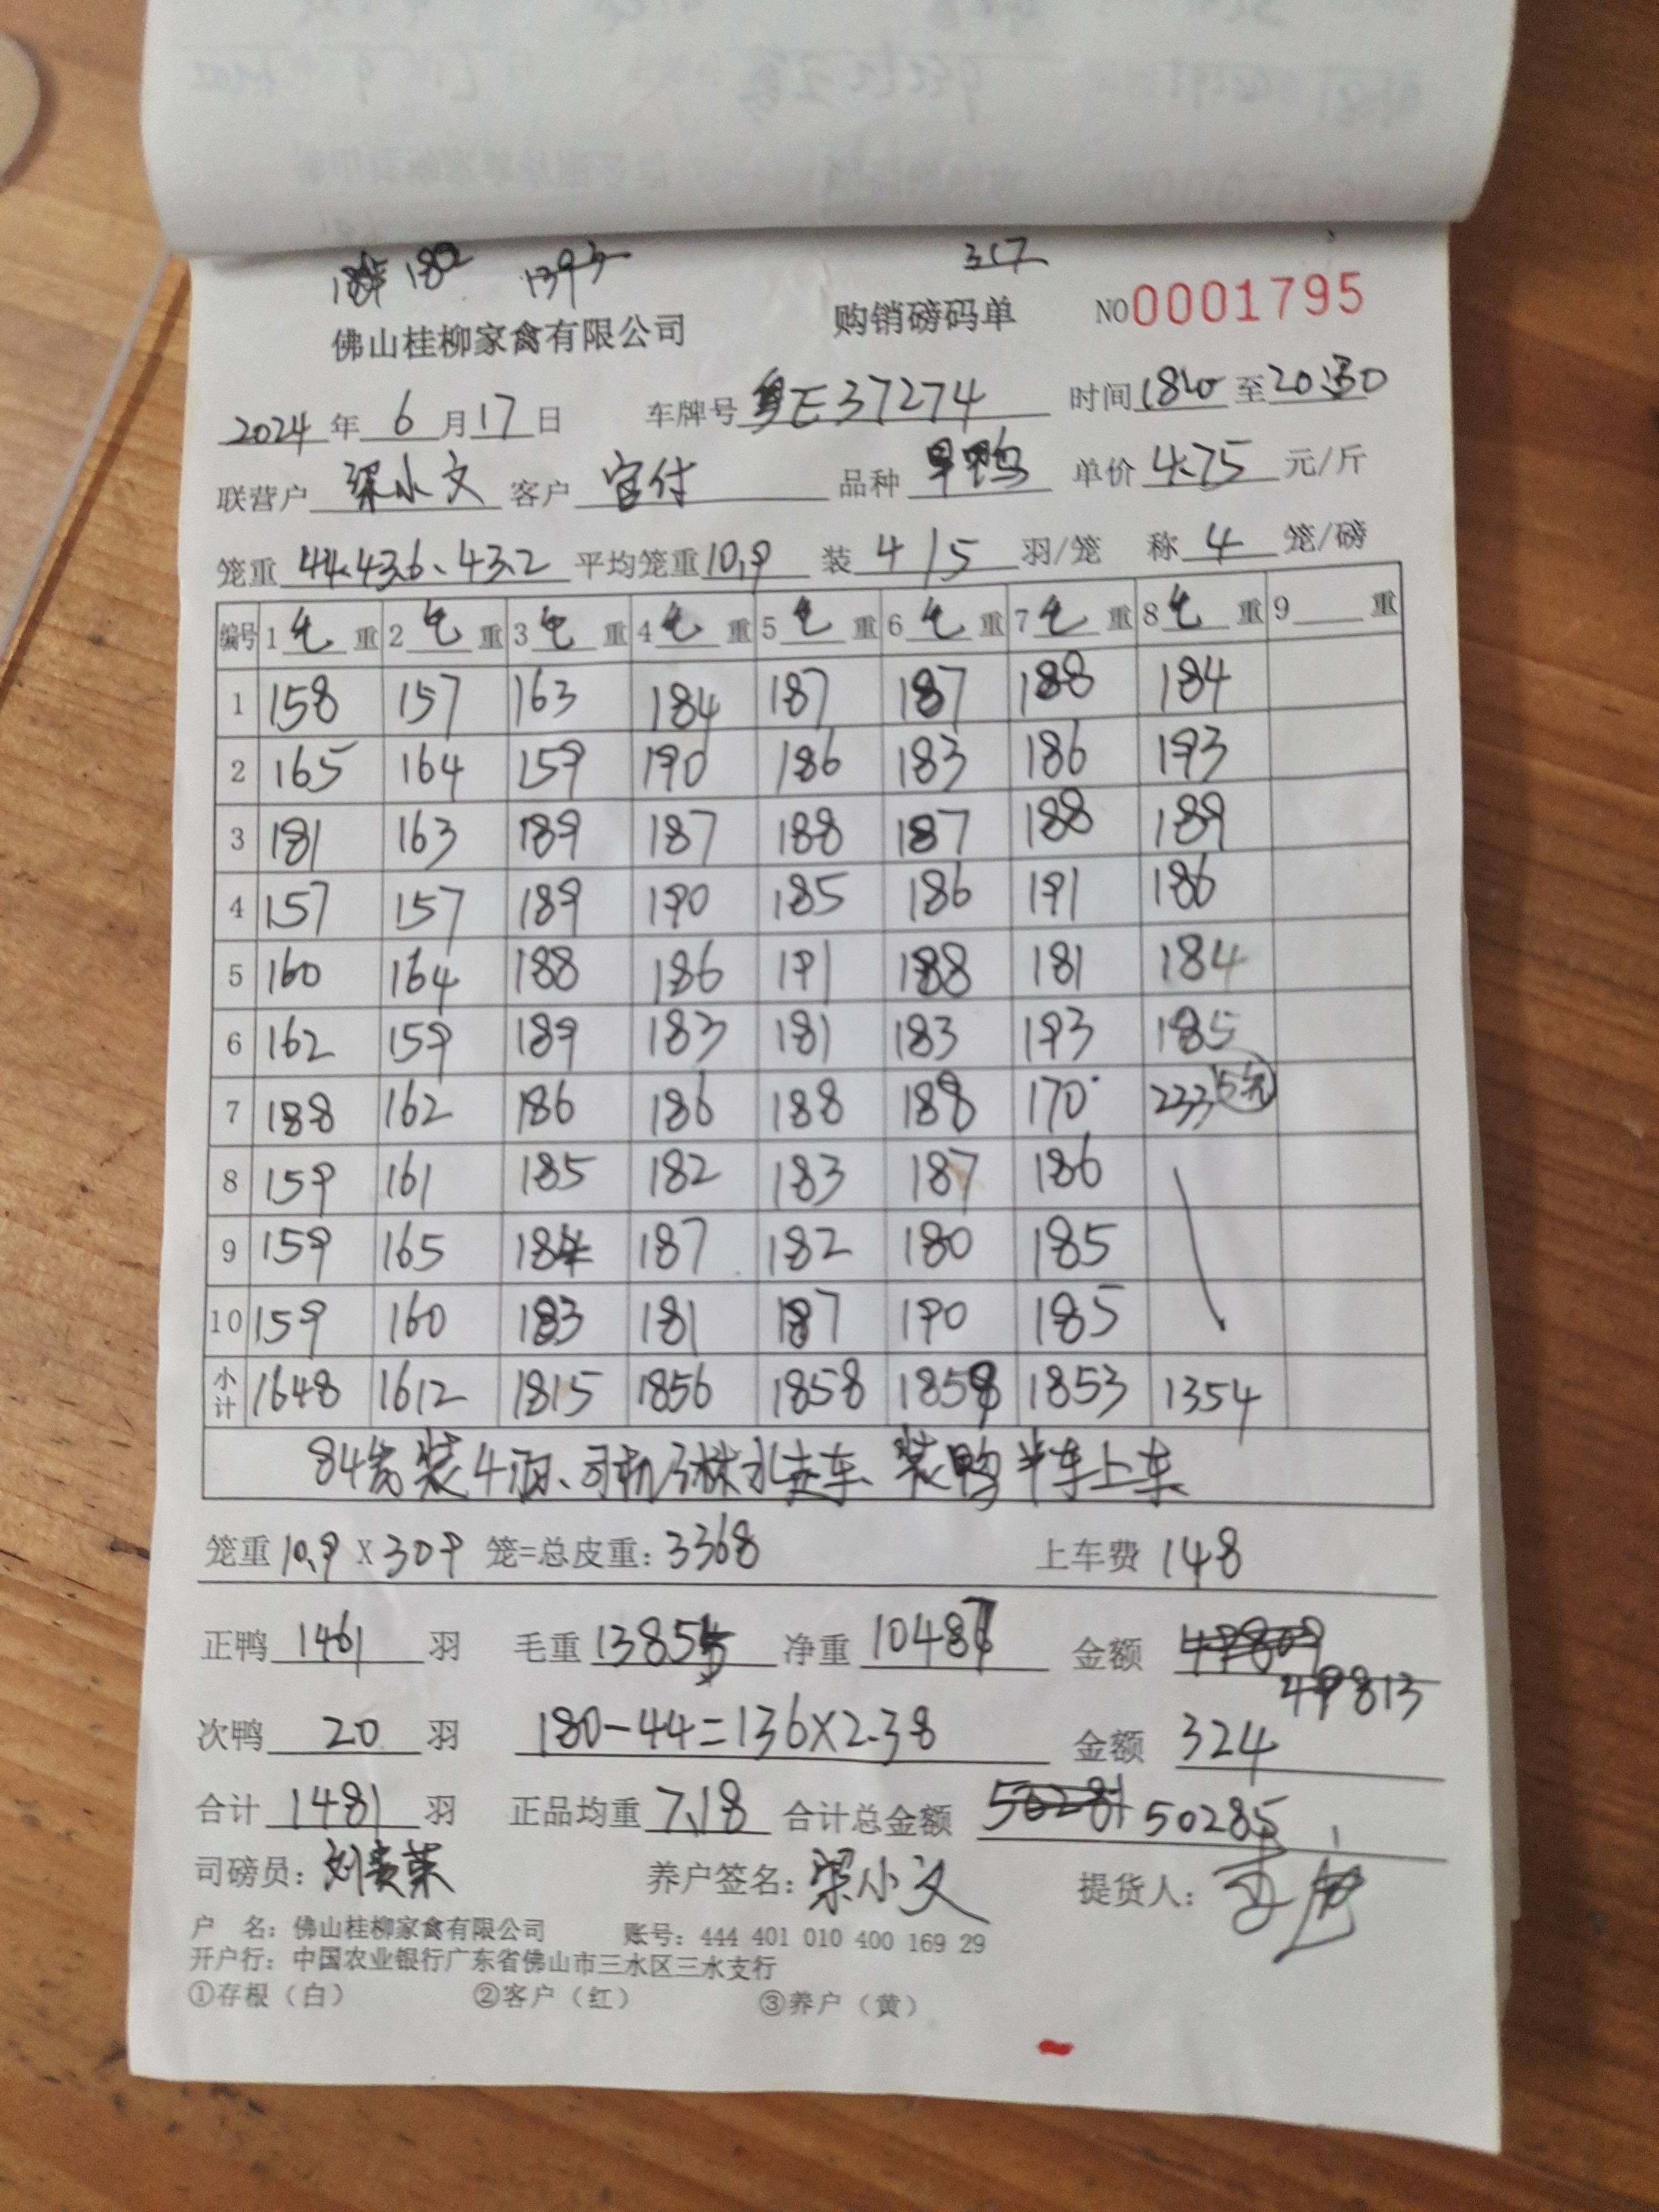 180 1393 317
佛山桂柳家禽有限公司 购销磅码单 NO0001795
2024年6月17日 车牌号粤E37274 时间1820至20:50
联营户梁小文 客户宝付 品种旱鸭 单价4.75元/斤
笼重44.43.6、43.2 平均笼重10.9 装4/5羽/笼 称4笼/磅
编号 1毛重 2毛重 3毛重 4毛重 5毛重 6毛重 7毛重 8毛重 9 重
1 158 157 163 184 187 187 188 184
2 165 164 159 190 186 183 186 193
3 181 163 189 187 188 187 188 189
4 157 157 189 190 185 186 191 186
5 160 164 188 186 191 188 181 184
6 162 159 189 183 181 183 193 185
7 188 162 186 186 188 188 170 233 5元
8 159 161 185 182 183 187 186
9 159 165 184 187 182 180 185
10 159 160 183 181 187 190 185
小计 1648 1612 1815 1856 1858 1859 1853 1354
84 装4 司机 水走车、装鸭半车上车
笼重10.9X309笼=总皮重:3368 上车费148
正鸭1461羽 毛重13855 净重10487 金额49809
49813
次鸭20羽 180-44=136×2.38 金额324
合计1481羽 正品均重7.18 合计总金额50281 50285
司磅员:刘贵荣 养户签名:梁小文 提货人:
户 名:佛山桂柳家禽有限公司 账号:444 401 010 400 169 29
开户行:中国农业银行广东省佛山市三水区三水支行
①存根(白) ②客户(红) ③养户(黄)